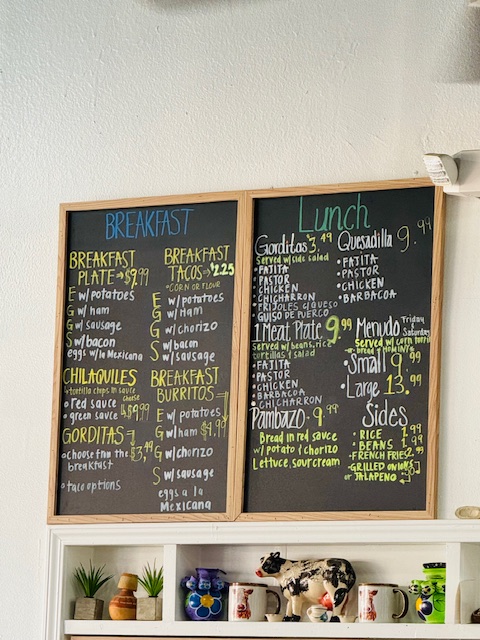 BREAKFAST
BREAKFAST
PLATE → $9.99
E w/potatoes
G w/ham
G w/sausage
S w/bacon
eggs w/la Mexicana
CHILAQUILES
tortilla chips in sauce
• red sauce cheese
• green sauce $9.99
GORDITAS → $3.49
• choose from the
breakfast
• taco options
BREAKFAST
TACOS → $2.25
*CORN OR FLOUR
E w/potatoes
G w/ham
G w/chorizo
S w/bacon
w/sausage
BREAKFAST
BURRITOS
E w/potatoes
G w/ham $4.99
G w/chorizo
S w/sausage
eggs a la
Mexicana
Lunch
Gorditas 3.49
Served w/side salad
• FAJITA
• PASTOR
• CHICKEN
• CHICHARRON
• FRIJOLES C/QUESO
• GUISO DE PUERCO
1 Meat Plate 9.99
Served w/beans, rice
tortillas & salad
• FAJITA
• PASTOR
• CHICKEN
• BARBACOA
• CHICHARRON
Pambazo - 9.99
Bread in red sauce
w/potato & chorizo
Lettuce, sour cream
Quesadilla 9.99
• FAJITA
• PASTOR
• CHICKEN
• BARBACOA
Menudo Friday
Saturday
Served w/corn tortilla
or bread & HOMINY
• Small 9.99
• Large 13.99
Sides
• RICE 1.99
• BEANS 1.99
• FRENCH FRIES 2.99
• GRILLED ONIONS
or JALAPEÑO